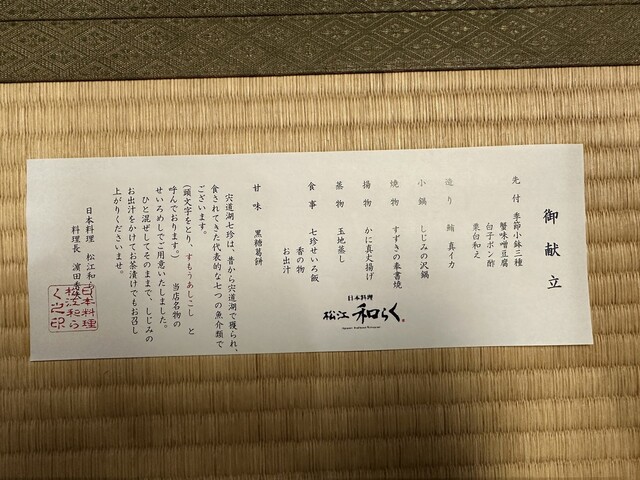 御献立
先付 季節小鉢三種
蟹味噌豆腐
白子ポン酢
東白和え
造り 鮪 真イカ
小鍋 しじみの沢鍋
焼物 すずきの奉書焼
揚物 かに真丈揚げ
蒸物 玉地蒸し
食事 七珍せいろ飯
香の物
お出汁
甘味 黒糖葛餅
日本料理
松江 和らく
宍道湖七珍は、昔から宍道湖で獲られ、
食されてきた代表的な七つの魚介類で
ございます。
(頭文字をとり、すもうあしこし と
呼んでおります。) 当店名物の
せいろめしでご用意いたしました。
ひと混ぜしてそのままで、しじみの
お出汁をかけてお茶漬けでもお召し
上がりくださいませ。
日本料理 松江和ら
料理長 濱田秀
日本料理
松江和ら
く之印